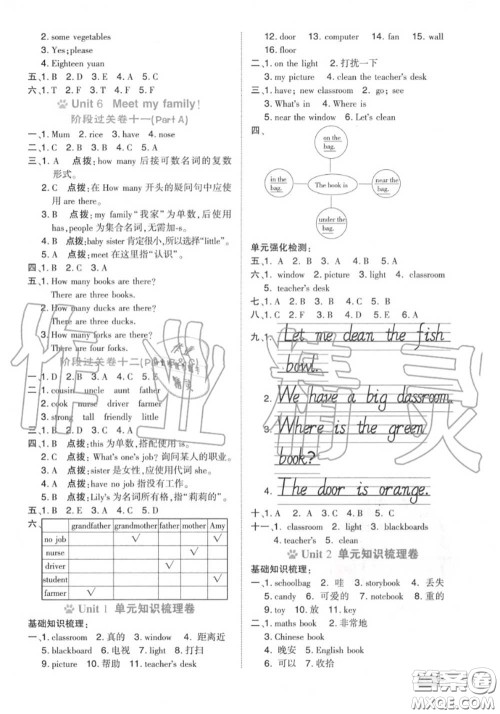 2. some vegetables
3. Yes;please
4. Eighteen yuan
五、1. B 2. D 3. E 4. A 5. C
六、1. T 2. F 3. F 4. F 5. F
Unit 6 Meet my family!
阶段过关卷十一(Part A)
一、1. Mum 2. rice 3. have 4. nose
二、1. B 2. D 3. E 4. A 5. C
三、1. A 点拨:how many 后接可数名词的复数
形式。
2. C 点拨:在 How many 开头的疑问句中应使
用 are there。
3. B 点拨:my family“我家”为单数,后使用
has,people为集合名词,无需加-s。
4. B 点拨:baby sister肯定很小,所以选择“little”。
5. B 点拨:meet在这里指“认识”。
四、1. B 2. C 3. A
五、1. How many books are there?
There are three books.
2. How many ducks are there?
There are three ducks.
3. How many forks are there?
There are four forks.
阶段过关卷十二
一、1. C 2. D 3. A 4. B
二、1. cousin uncle aunt father
2. cook nurse driver farmer
3. strong tall friendly little
四、1. B 点拨:this为单数,搭配使用is。
2. C 点拨:What's one's job? 询问某人的职业。
3. A 点拨:sister是女性,应使用代词she。
4. A 点拨:have no job指没有工作。
5. B 点拨:Lily's为名词所有格,指“莉莉的”。
五、1. B 2. C 3. D 4. A
六、
grandfather grandmother father mother Amy
no job √
nurse √
driver √
student √
farmer √
Unit 1 单元知识梳理卷
基础知识梳理:
一、1. classroom 2. 真的 3. window 4. 距离近
5. blackboard 6. 电视 7. light 8. 打扫
9. picture 10. 帮助 11. teacher's desk
12. door 13. computer 14. fan 15. wall
16. floor
二、1. on the light 2. 打扰一下
3. my picture 4. clean the teacher's desk
三、1. have; new classroom 2. go; see
3. What's in 4. Where is
5. near the window 6. Let's clean
四、
on the bag.
in the bag.
The book is
near the bag.
under the bag.
单元强化检测:
五、1. A 2. C 3. A 4. A 5. C
六、1. window 2. picture 3. light 4. classroom
5. teacher's desk
七、1. A 2. C 3. A 4. B 5. B
八、1. D 2. C 3. B 4. A
九、1. Let me clean the fish
bowl.
2. We have a big classroom.
3. Where is the green
book?
4. The door is orange.
十一、1. classroom 2. light 3. blackboards
4. teacher 5. clean
Unit 2 单元知识梳理卷
基础知识梳理:
一、1. schoolbag 2. 哇 3. storybook 4. 丢失
5. candy 6. 可爱的 7. notebook 8. 重的
9. toy 10. 放 11. key
二、1. maths book 2. 非常地
3. Chinese book
4. 晚安 5. English book
6. 可以 7. 收拾
作业精灵
答案圈
MXQE.COM